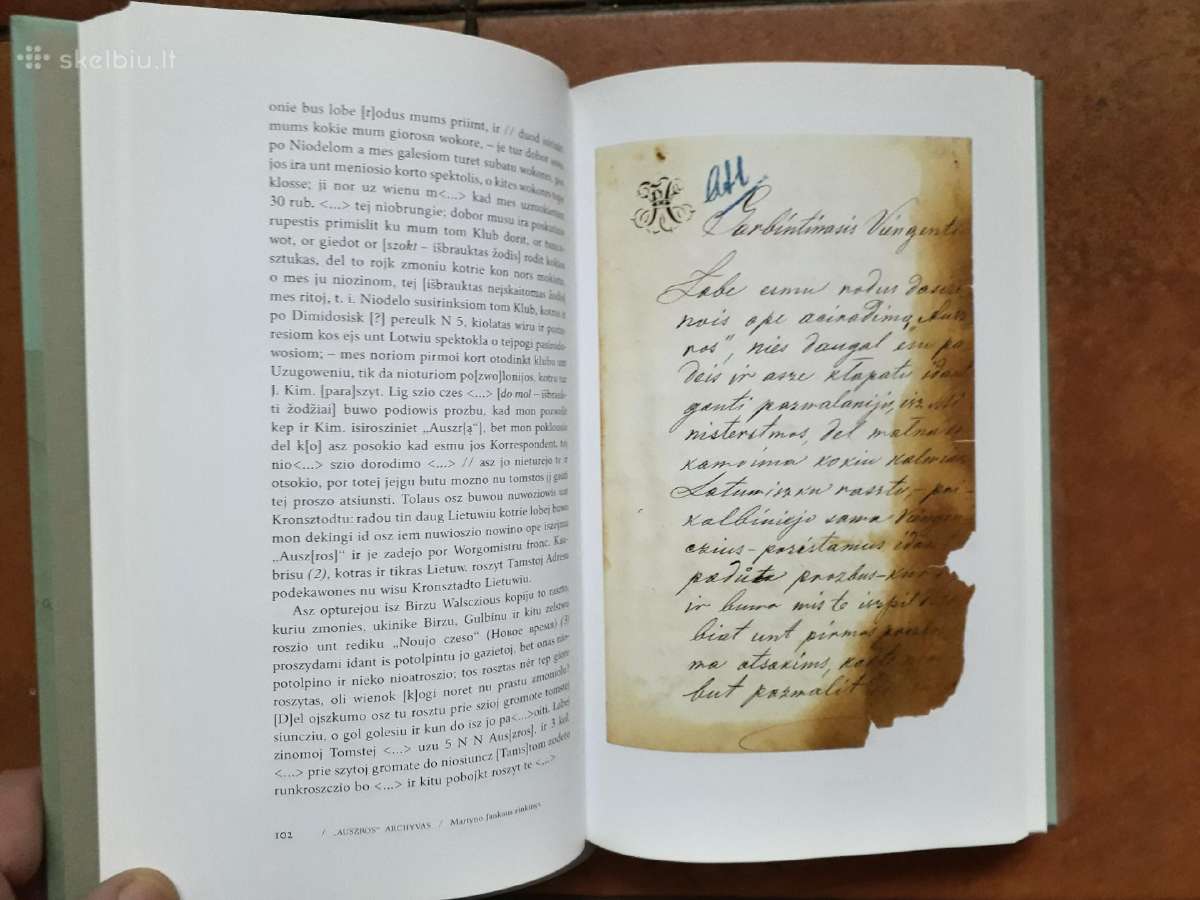 skelbiu.lt
onie bus lobe [r]odus mums priimt, ir // duod
mums kokie mum giorosn wokore, – je tur dobor
po Niodelom a mes galesiom turet subatu wokores,
jos ira unt meniosio korto spektolis, o kites wokores
klosse; ji nor uz wienu m<...> kad mes uzmokietum
30 rub. <...> tej niobrungie; dobor musu ira
rupestis primislit ku mum tom Klub dorit, or
wot, or giedot or [szokt – išbrauktas žodis] rodit kokias
sztukas, del to rojk zmoniu kotrie kon nors
o mes ju niozinom, tej [išbrauktas neįskaitomas žodis]
mes ritoj, t. i. Niodelo susirinksiom tom Klub,
po Dimidosisk [?] pereulk N 5, kiolatas wiru ir
resiom kos ejs unt Lotwiu spektokla o tejpogi
wosiom; – mes noriom pirmoi kort otodinkt kluba
Uzugoweniu, tik da nioturiom po[zwo]lonijos, kotru tur
J. Kim. [para]szyt. Lig szio czes <...> [do mol – išbrauk-
ti žodžiai] buwo podiowis prozbu, kad mon pozwolit
kep ir Kim. isirosziniet „Ausz[rą“], bet mon
del k[o] asz posokio kad esmu jos Korrespondent,
nio<...> szio dorodimo <...> // asz jo nieturejo te ir
otsokio, por totej jejgu butu mozno nu tomstos jį gauti
tej proszo atsiunsti. Tolaus osz buwou nuwoziowis unt
Kronsztodtu: radou tin daug Lietuwiu kotrie lobej buwo
mon dekingi id osz iem nuwioszio nowino ope iszejma
„Ausz[ros]“ ir je zadejo por Worgomistru fronc. Kau-
brisu (2), kotras ir tikras Lietuw. roszyt Tamstoj Adresu
podekawones nu wisu Kronsztadto Lietuwiu.
Asz opturejou isz Birzu Walsczious kopiju to raszto,
kuriu zmonies, ukinike Birzu, Gulbinu ir kitu zelstwo
roszio unt rediku „Noujo czeso“ (Новое время) (3)
proszydami idant is potolpintu jo gazietoj, bet onas nio-
potolpino ir nieko nioatroszio; tos rosztas nėr tep giore
roszytas, oli wienok [k]ogi noret nu prastu zmoniolu?
[D]el ojszkumo osz tu rosztu prie szioj gromote tomstej
siuncziu, o gol golesiu ir kun do isz jo pa<...>oiti. Labej
zinomoj Tomstej <...> uzu 5 N N Aus[zros]. ir 3 kol.
<...> prie szytoj gromate do niosiuncz [Tams]tom zodeto
runkroszczio bo <...> ir kitu pobojkt roszyt te <...>
102 / „AUSZROS“ ARCHYVAS / Martyno Jankaus rinkinys
Garbintinasis Viengenti
Łabe esmu rodus dasi
nois ope aciradimą „Ausz
ros“, nies daugal esu pa
deis ir asze kłopatu idan
ganti pazwalaniju, isz Mi
nisterstwos, del
kamoima kokiu kalwiai
Latwiszku rasztu, – pri
kalbiniejo sawa Viengen
czius – porėstamus idan
padůta prozbus – kur
ir buwa miste iszpil
biat unt pirmos
ma atsakims,
but pazwalit